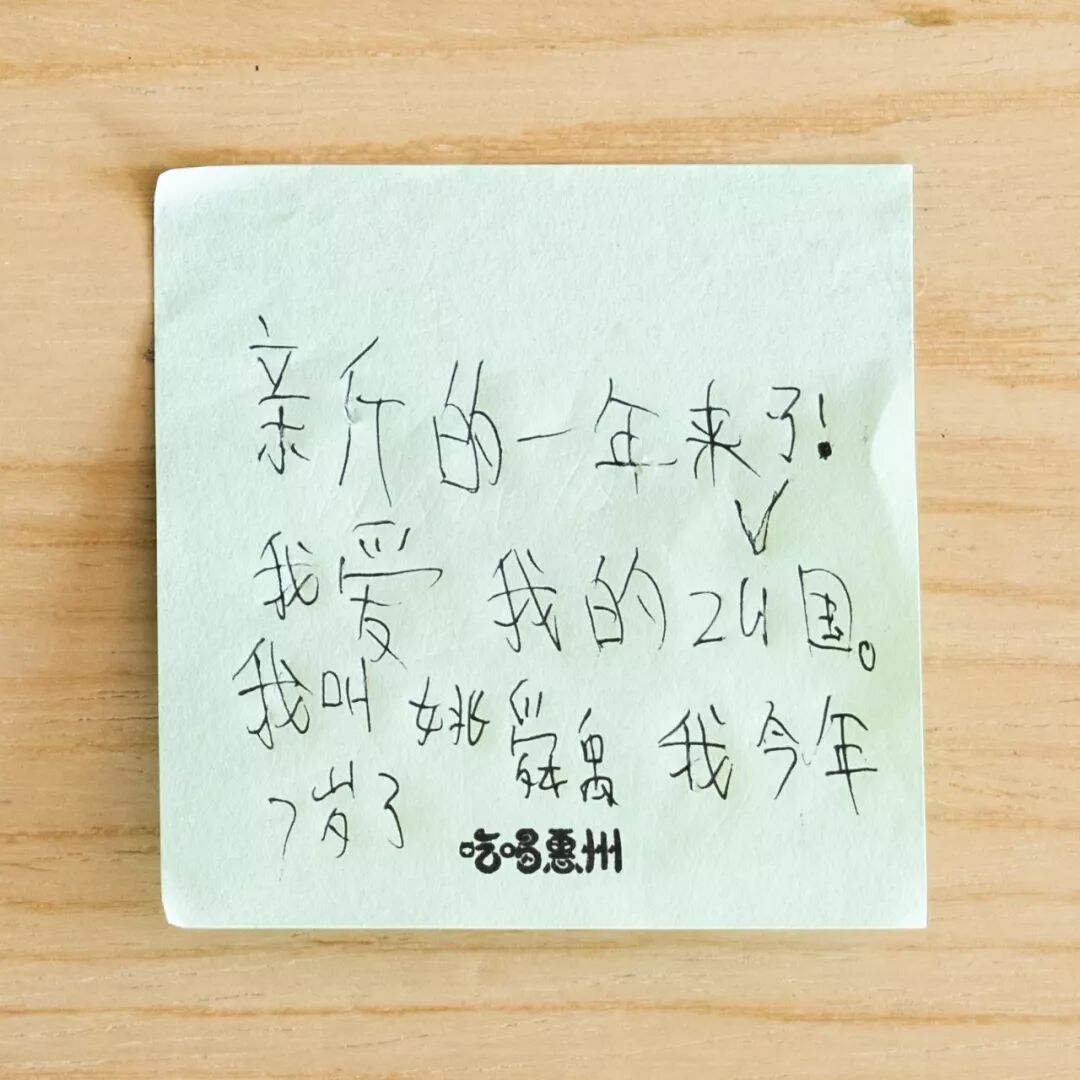 新的一年来了!
我爱 我的24国。
我叫姚舜禹 我今年
7岁了
吃喝惠州